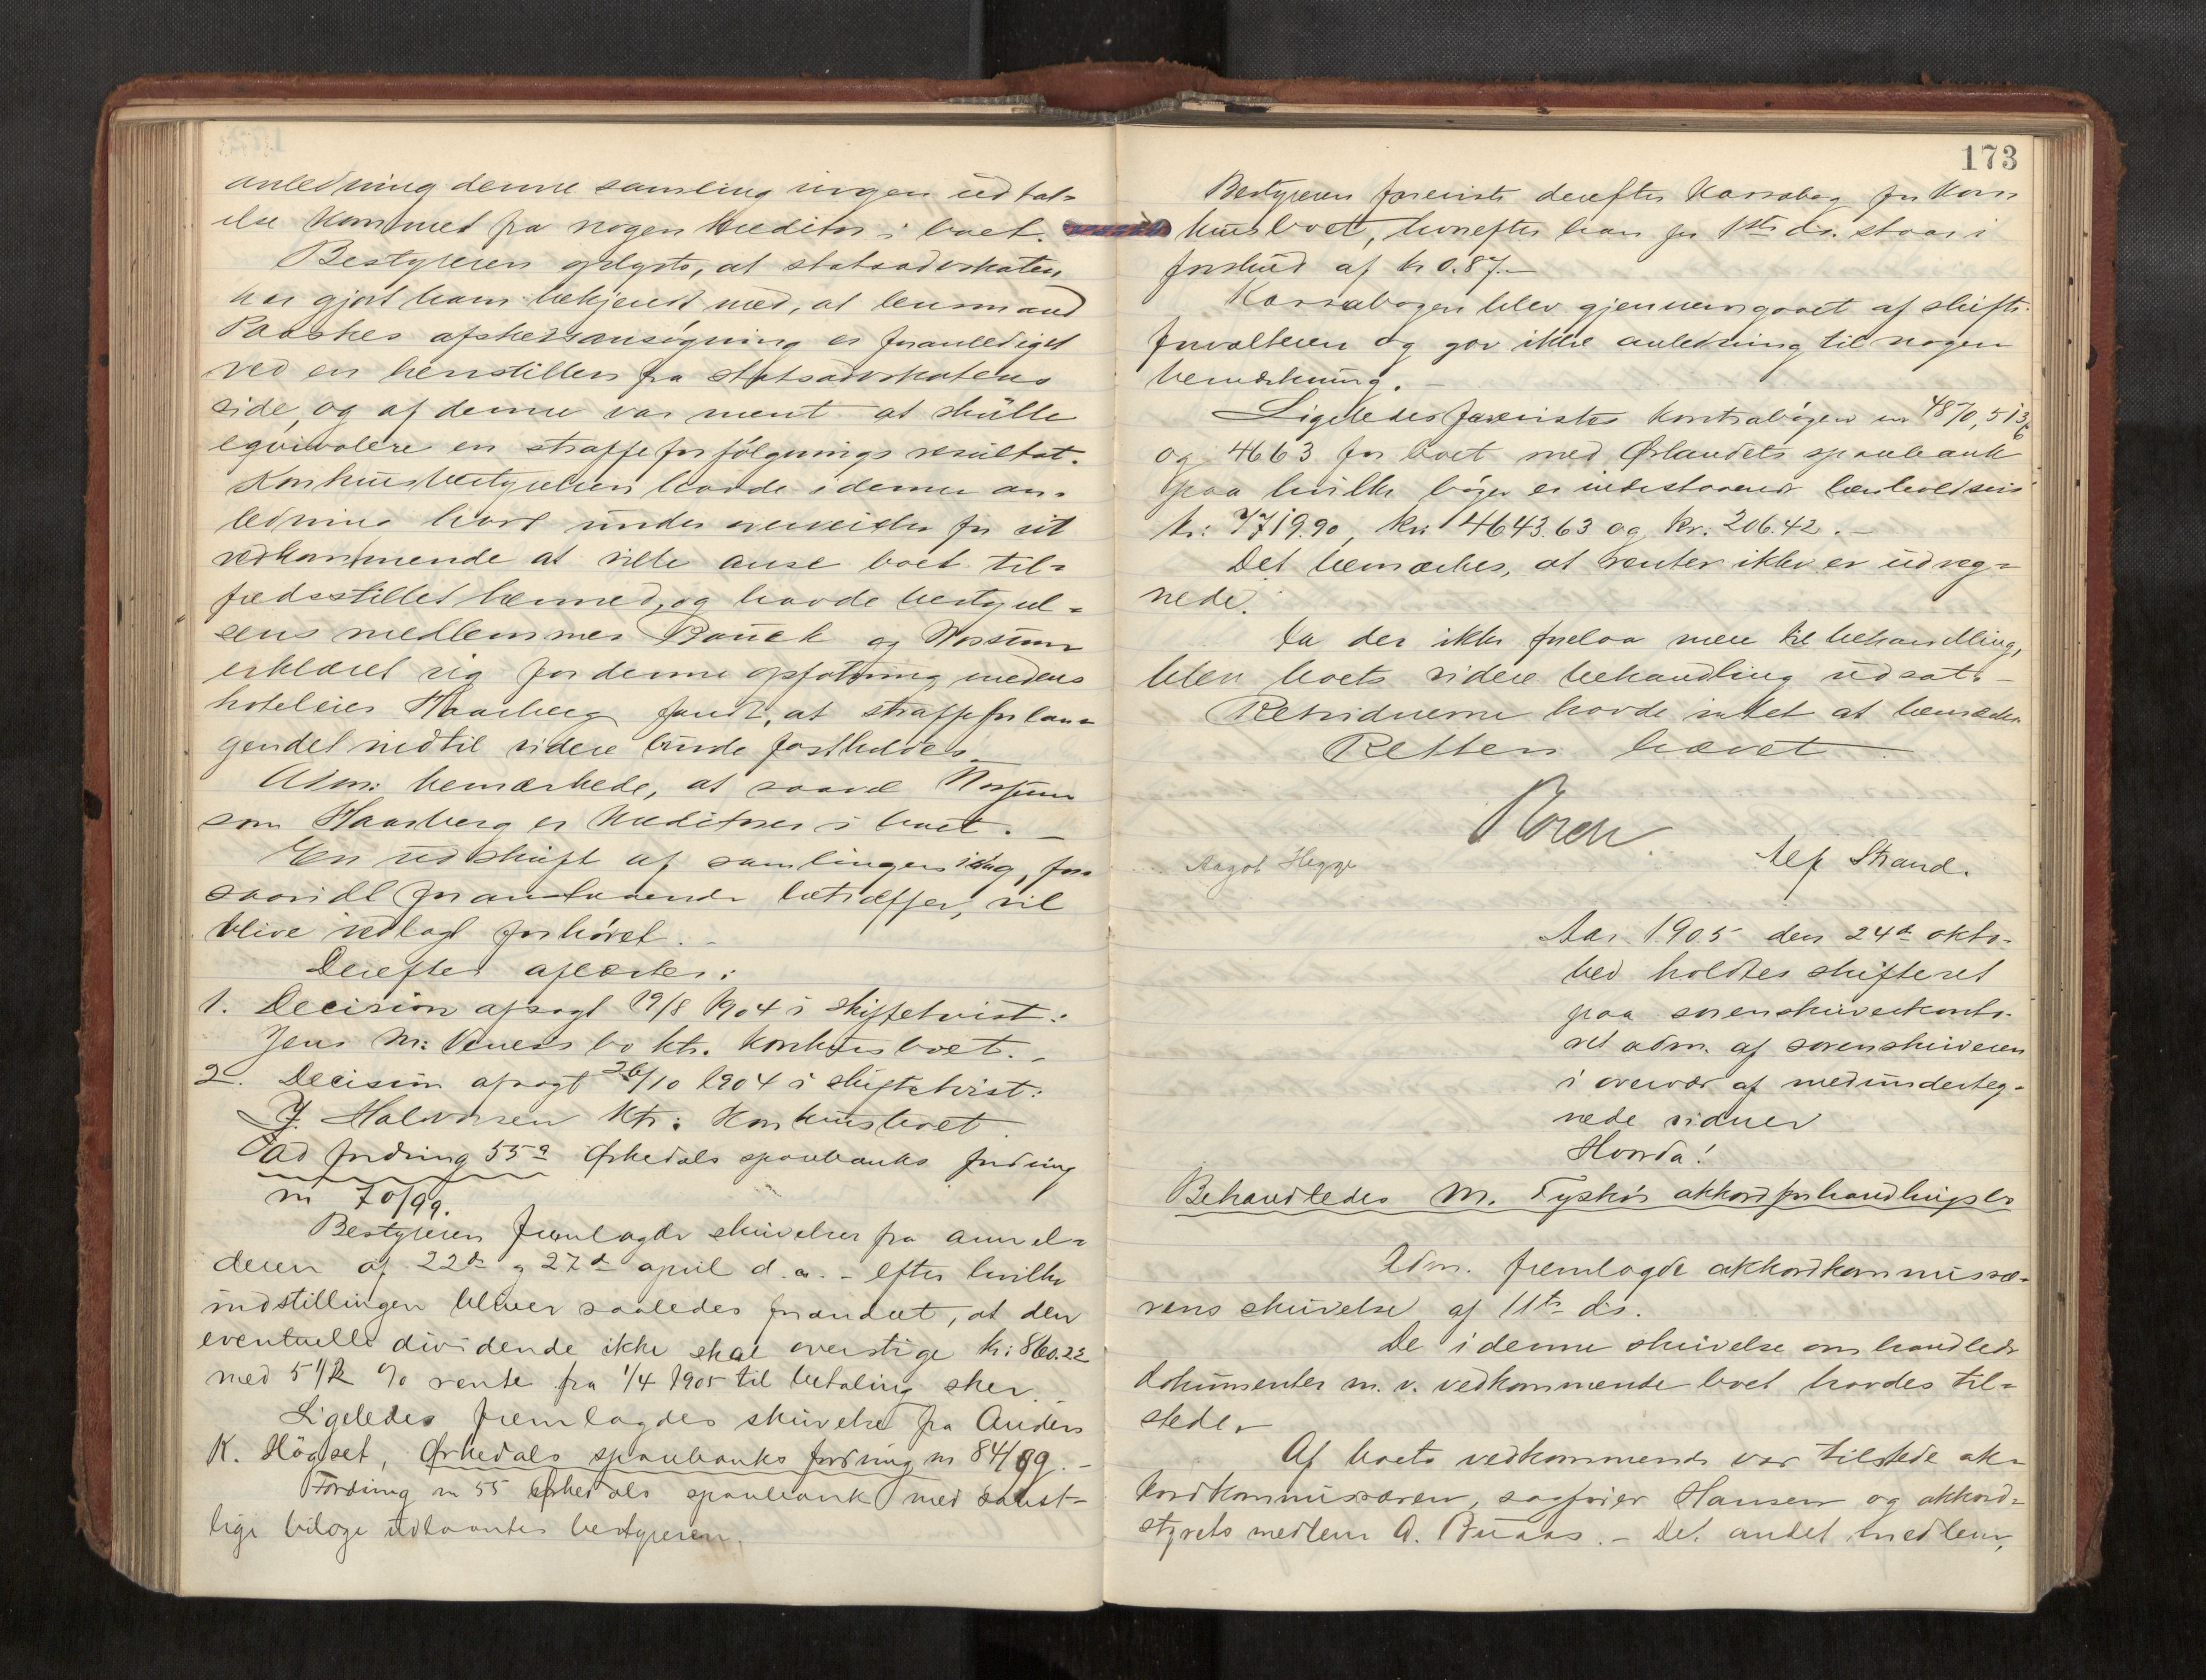 anledning denne samling ingen udtal-
else kommet fra nogen kreditor i boet.
Bestyreren oplyste, at statsadvokaten
har gjort ham bekjendt med, at lensmand
Paaskes afskedsansøgning er foranlediget
ved en henstillen fra statsadvokatens
side, og af denne var ment at skulle
eqvivalere en straffeforfølgnings resultat.
Konkursbestyrelsen havde i denne an-
ledning hvert under
vedkommende at ville anse boet til-
fredsstillet hermed, og havde bestyrel-
sens medlemmer Bauck og Rossum
erklæret sig for denne opfatning medens
hoteleier Haarberg fandt, at straffeforlan-
gendet indtil videre burde fastholdes.
Adm: bemærkede, at saavel Rossum
som Haarberg er kreditorer i boet. -
En udskrift af samlingen idag, for-
saavidt foranstaaende betræffer, vil
blive vedlagt forhøret. -
Derefter aflæstes:
1. Decision afsagt 19/8 1904 i skiftetvist:
Jens M: Veness bo ktr. konkursboet. -
2. Decision afsagt 26/10 1904 i skiftetvist:
J. Halvorsen ktr: konkursboet.
Ad fordring 55 Ørkedals sparebanks fordring
nr 70/99.
Bestyreren fremlagde skrivelser fra anmel-
deren af 22de og 27de april d. a. - efter hvilke
indstillingen bliver saaledes forandret, at den
eventuelle dividende ikke skal overstige kr: 860.22
med 5 1/2 % rente fra 1/4 1905 til betaling sker.
Ligeledes fremlagdes skrivelse fra Anders
K. Høgset, Ørkedals sparebanks fordring nr 84/99. -
Fordring nr 55 Ørkedals sparebank med samt-
lige bilage udlaantes bestyreren.
173
Bestyreren foreviste derefter Kassabog for kon-
kursboet, hvorefter han pr 1ste ds. staar i
forskud af kr 0.87. -
Kassabogen blev gjennemgaaet af skifte-
forvalteren og gav ikke anledning til nogen
bemærkning. -
Ligeledes forevistes kontrabøger nr 4870, 5136
og 4663 for boet med Ørlandets sparebank
paa hvilke bøger er indestaaende henholdsvis
kr: 7719.90, kr: 4643.63 og kr. 206.42. -
Det bemærkes, at renter ikke er udreg-
nede.
Da der ikke forelaa mere til behandling,
blev boets videre behandling udsat. -
Retsvidnerne havde intet at bemærke.
Retten hævet.
Aagot Hegge
Alf Strand.
Aar 1905 den 24de okto-
ber holdtes skifteret
paa sorenskriverkonto-
ret adm. af sorenskriveren
i overvær af medunderteg-
nede vidner
Hvorda!
Behandledes M. Tyskøs akkordforhandlingsbo
Adm. fremlagde akkordkommissæ-
rens skrivelse af 11te ds.
De i denne skrivelse omhandlede
dokumenter m. v. vedkommende boet havdes til-
stede. -
Af boets vedkommende var tilstede ak-
kordkommissæren, sagfører Hansen og akkord-
styrets medlem A. Buaas. - Det andet medlem,